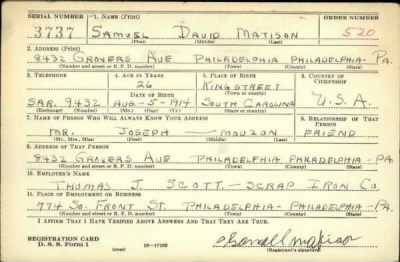 SERIAL NUMBER 1. NAME (Print) ORDER NUMBER
3737 SAMUEL DAVID MATISON 520
(First) (Middle) (Last)
2. ADDRESS (Print)
8432 GROVERS AVE PHILADELPHIA PHILADELPHIA-PA.
(Number and street or R. F. D. number) (Town) (County) (State)
3. TELEPHONE 4. AGE IN YEARS 5. PLACE OF BIRTH 6. COUNTRY OF CITIZENSHIP
26 KINGSTREET
DATE OF BIRTH (Town or county)
SAR. 9432 AUG-5-1914 SOUTH CAROLINA U.S.A.
(Exchange) (Number) (Mo.) (Day) (Yr.) (State or country)
7. NAME OF PERSON WHO WILL ALWAYS KNOW YOUR ADDRESS 8. RELATIONSHIP OF THAT PERSON
MR. JOSEPH — MOUZON FRIEND
(Mr., Mrs., Miss) (First) (Middle) (Last)
9. ADDRESS OF THAT PERSON
8432 GROVERS AVE PHILADELPHIA PHILADELPHIA-PA
(Number and street or R. F. D. number) (Town) (County) (State)
10. EMPLOYER'S NAME
THOMAS J. SCOTT — SCRAP IRON CO.
11. PLACE OF EMPLOYMENT OR BUSINESS
774 SO. FRONT ST. PHILADELPHIA-PHILADELPHIA-PA.
(Number and street or R. F. D. number) (Town) (County) (State)
I AFFIRM THAT I HAVE VERIFIED ABOVE ANSWERS AND THAT THEY ARE TRUE.
REGISTRATION CARD
D. S. S. Form 1 (over) 16-17105 Samuel Matison
(Registrant's signature)